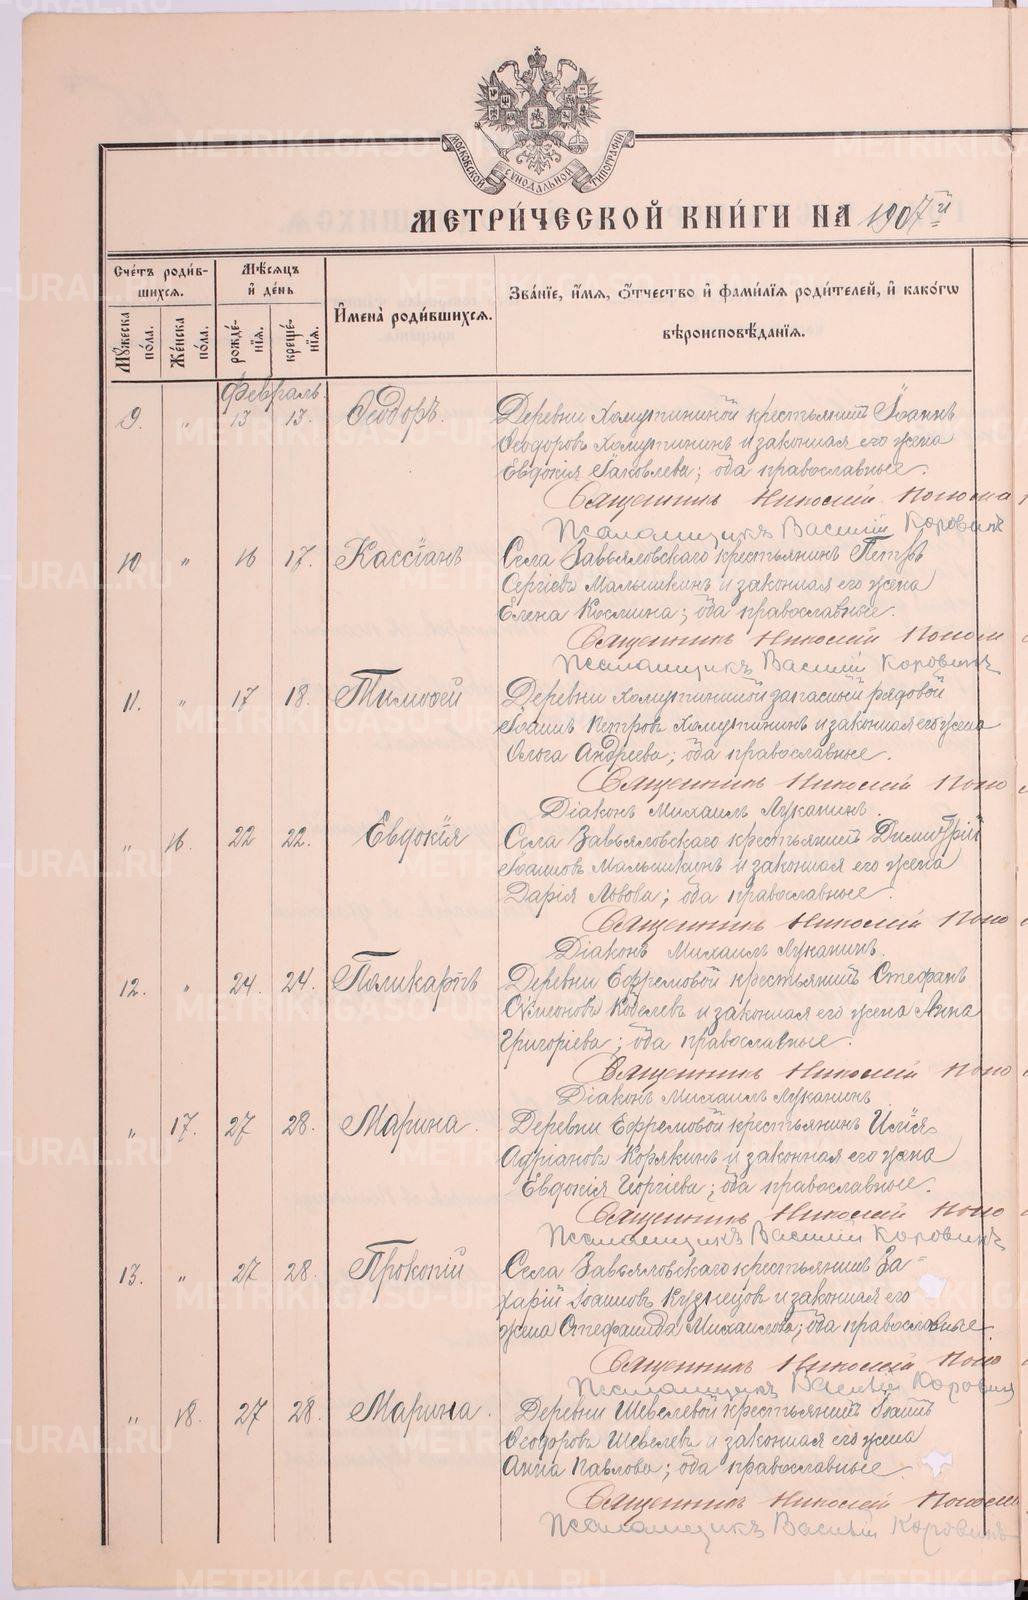 МОСКОВСКОЙ СѴНОДАЛЬНОЙ ТИПОГРАФІИ
МЕТРИ́ЧЕСКОЙ КНИ́ГИ НА 1907й
Сче́тъ роди́вшихся.
Мѣсяцъ и де́нь
Имена̀ роди́вшихся.
Зва́нїе, и́мя, о́тчество и фами́лїя роди́телей, и како́гѡ вѣроисповѣ́данїя.
Му́жеска по́ла.
Же́нска по́ла.
рожде́нїя.
креще́нїя.
Февраль.
9. " 13 13. Ѳеодоръ. Деревни Хомутининой крестьянинъ Іоаннъ
Ѳеодоровъ Хомутининъ и законная его жена
Евдокія Іаковлева; оба православные.
Священникъ Николай Поно
Псаломщикъ Василій Коровинъ
10 " 16 17. Кассіанъ Села Завьяловскаго крестьянинъ Петръ
Сергіевъ Малышкинъ и законная его жена
Елена Космина; оба православные.
Священникъ Николай Поно
Псаломщикъ Василій Коровинъ
11. " 17 18. Тимоѳей Деревни Хомутининой запасный рядовой
Іоаннъ Петровъ Хомутининъ и законная его жена
Ольга Андреева; оба православные.
Священникъ Николай Поно
Діаконъ Михаилъ Луканинъ.
" 16. 22 22. Евдокія Села Завьяловскаго крестьянинъ Димитрій
Іоанновъ Малышкинъ и законная его жена
Дарія Львова; оба православные.
Священникъ Николай Поно
Діаконъ Михаилъ Луканинъ.
12. " 24. 24. Поликарпъ Деревни Ефремовой крестьянинъ Стефанъ
Сѵмеоновъ Кобелевъ и законная его жена Анна
Григоріева; оба православные.
Священникъ Николай Поно
Діаконъ Михаилъ Луканинъ
" 17. 27 28. Марина. Деревни Ефремовой крестьянинъ Илія
Адріановъ Корякинъ и законная его жена
Евдокія Георгіева; оба православные.
Священникъ Николай Поно
Псаломщикъ Василій Коровинъ
13. " 27 28. Прокопій Села Завьяловскаго крестьянинъ За-
харій Іоанновъ Кузнецовъ и законная его
жена Стефанида Михаилова; оба православные.
Священникъ Николай Поно
Псаломщикъ Василій Коровинъ
" 18. 27 28. Марина. Деревни Шевелевой крестьянинъ Іоаннъ
Ѳеодоровъ Шевелевъ и законная его жена
Анна Павлова; оба православные.
Священникъ Николай Поно
Псаломщикъ Василій Коровинъ
METRIKI.GASO-URAL.RU